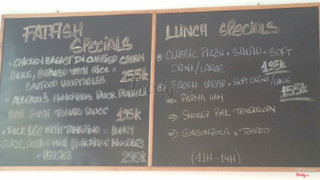 FATFISH
SPECIALS
CHICKEN BREAST IN CHEESE CREAM
RICE
SAUTEED VEGETABLES 255k
ALBERTO'S HOMEMADE DUCK
WITH FRESH TOMATO SAUCE 195k
DUCK LEG WITH TAMARIND & HONEY
HOMEMADE NOODLES
& VEGGIES 295k
LUNCH SPECIALS
CLASSIC PIZZA + SALAD + SOFT
DRINK/LARUE 195k
FRESH WRAP + SOFT DRINK/LARUE
155k
→ PARMA HAM
→ SMOKED PORK TENDERLOIN
→ GORGONZOLA & TOMATO
(11H-14H)